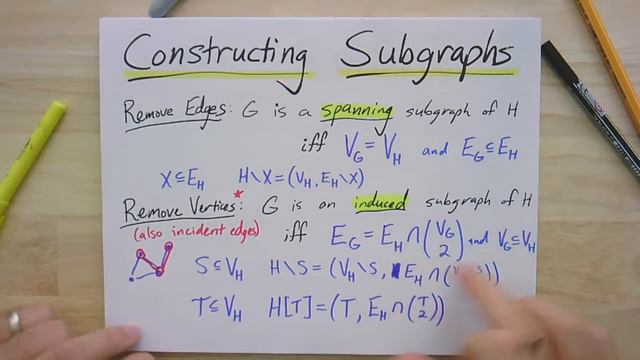 Constructing Subgraphs
Remove Edges: G is a spanning subgraph of H
iff V_G = V_H and E_G ⊆ E_H
X ⊆ E_H H \ X = (V_H, E_H \ X)
Remove Vertices:* G is an induced subgraph of H
(also incident edges) iff E_G = E_H ∩ (V_G 2) and V_G ⊆ V_H
S ⊆ V_H H \ S = (V_H \ S, E_H ∩ (
T ⊆ V_H H[T] = (T, E_H ∩ (T 2))